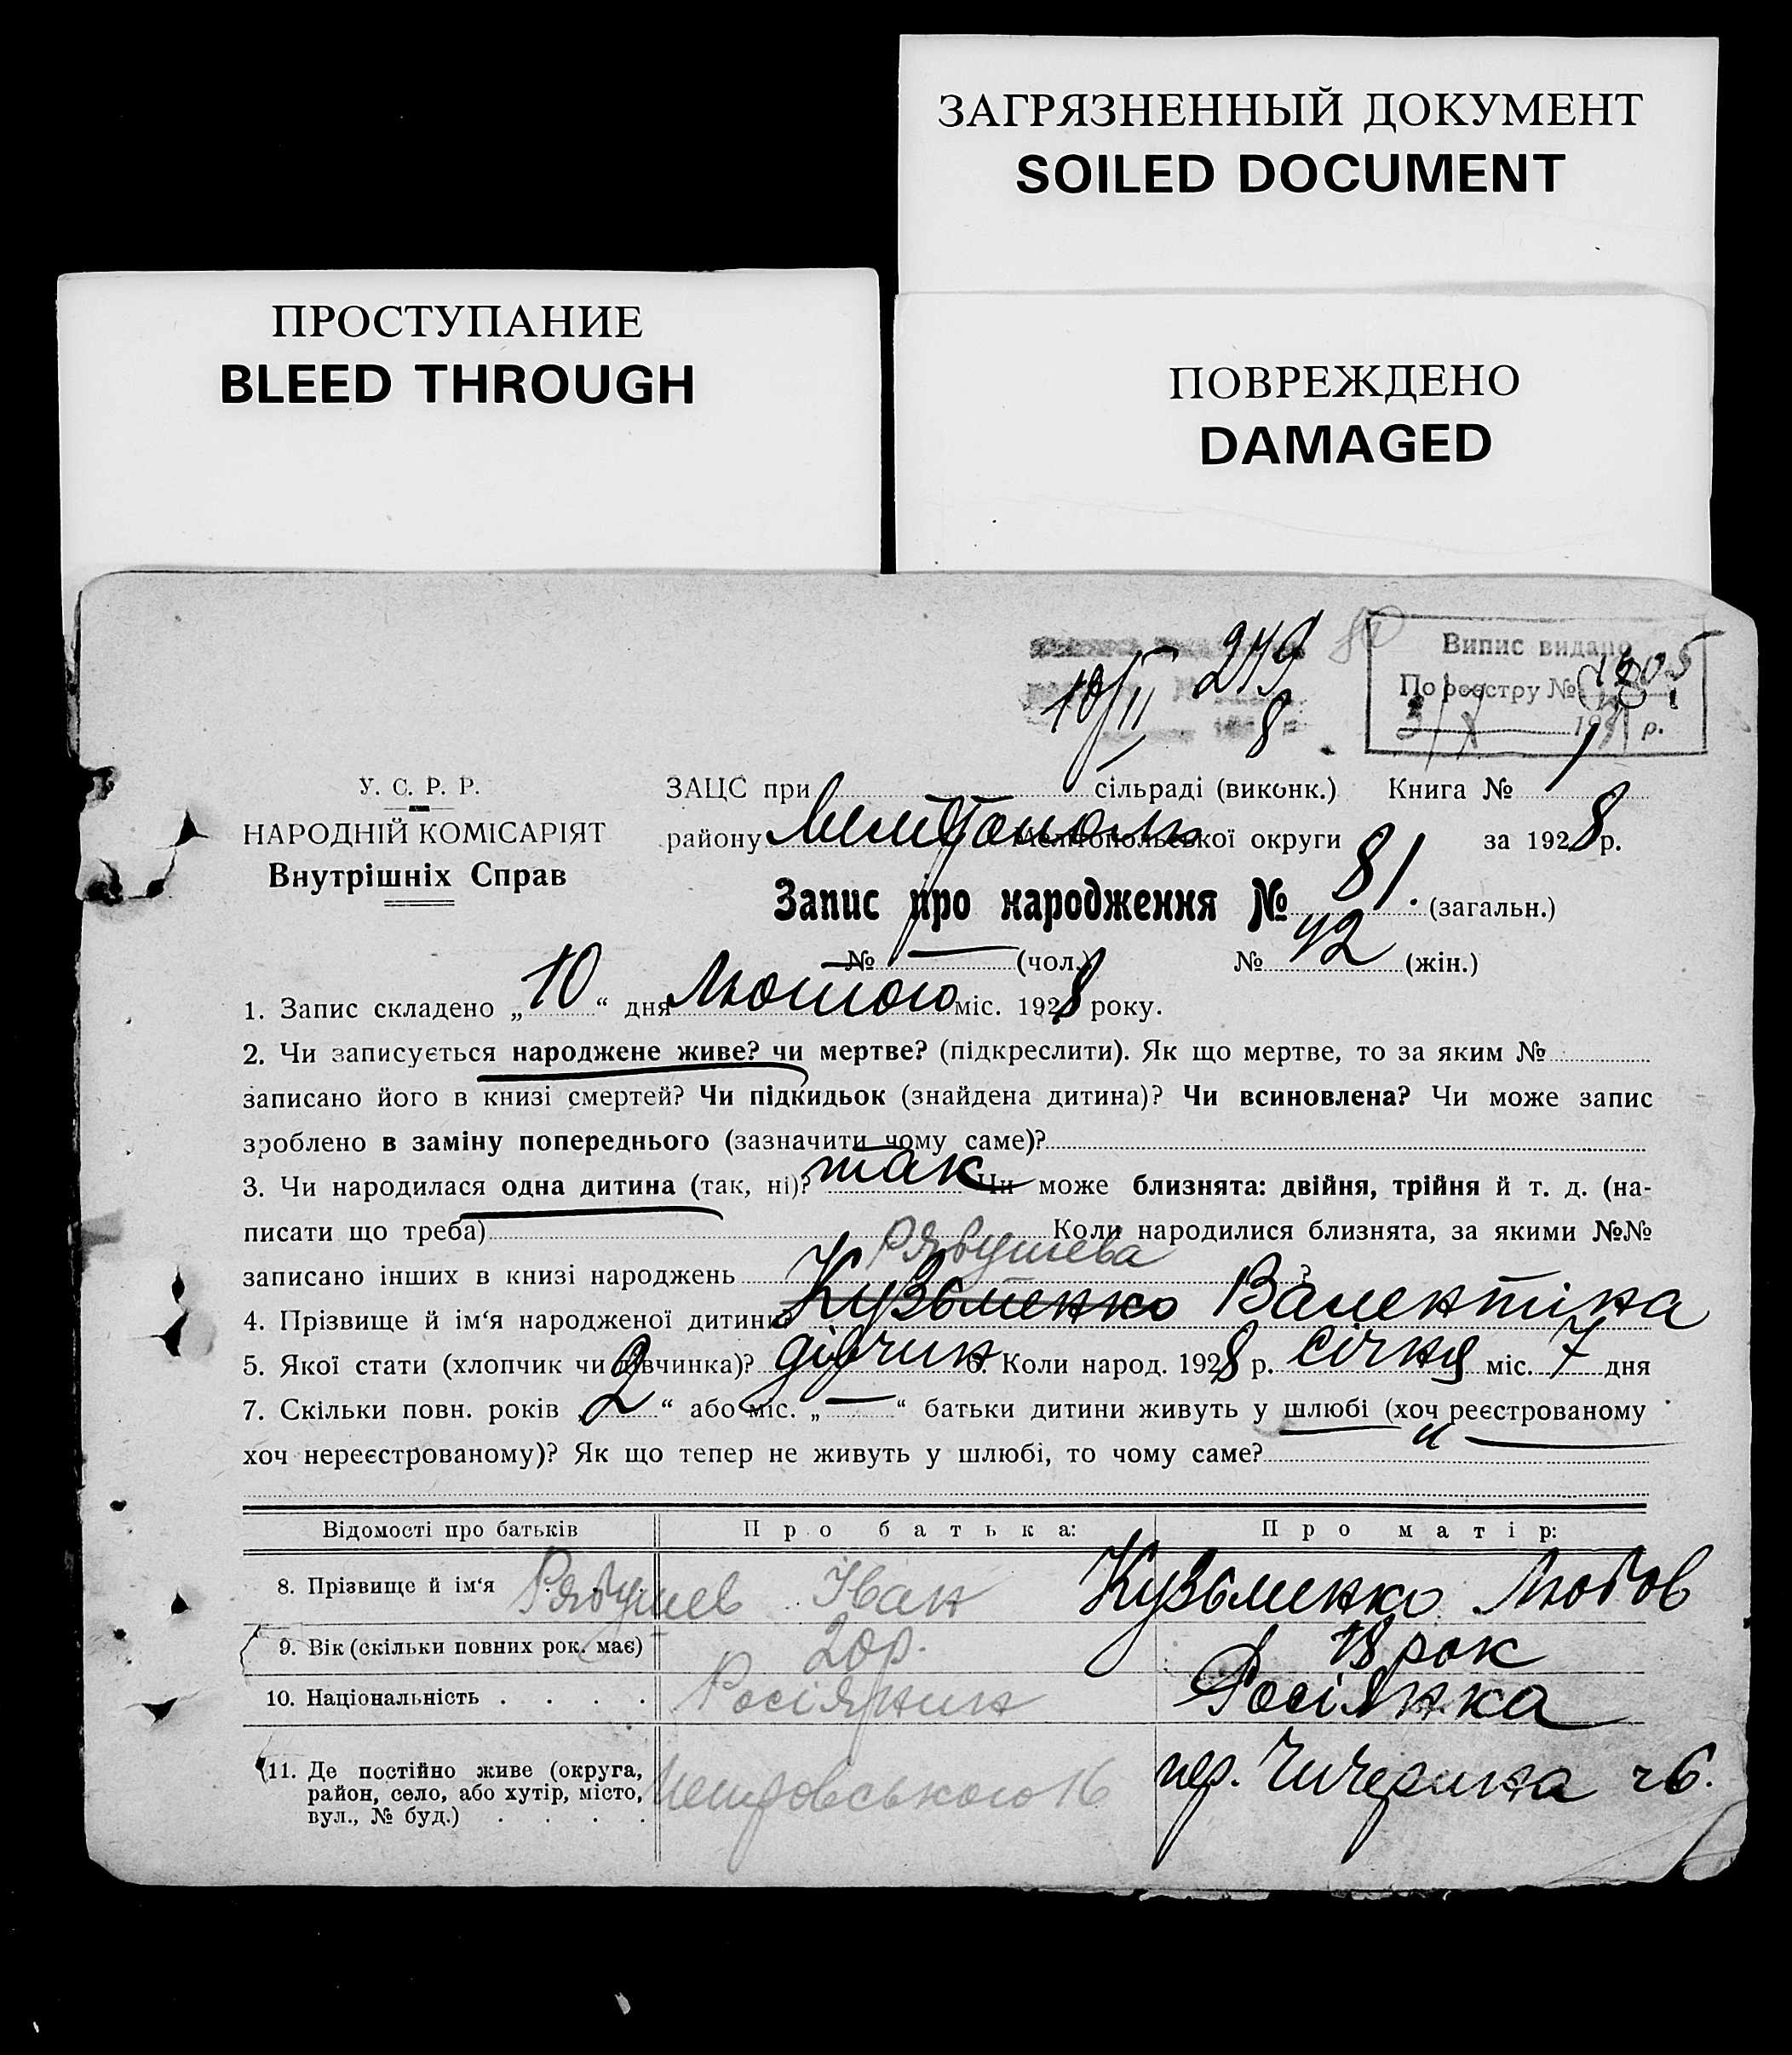 ЗАГРЯЗНЕННЫЙ ДОКУМЕНТ
SOILED DOCUMENT
ПРОСТУПАНИЕ
BLEED THROUGH
ПОВРЕЖДЕНО
DAMAGED
Випис видано
По реєстру №
10/II 279
8
У. С. Р. Р.
НАРОДНІЙ КОМІСАРІЯТ
Внутрішніх Справ
ЗАЦС при сільраді (виконк.) Книга № 1
району Мелітополь Мелітопольської округи за 1928 р.
Запис про народження № 81. (загальн.)
№ — (чол.) № 42 (жін.)
1. Запис складено „10“ дня Лютого міс. 1928 року.
2. Чи записується народжене живе? чи мертве? (підкреслити). Як що мертве, то за яким №
записано його в книзі смертей? Чи підкидьок (знайдена дитина)? Чи всиновлена? Чи може запис
зроблено в заміну попереднього (зазначити чому саме)?
3. Чи народилася одна дитина (так, ні)? так Чи може близнята: двійня, трійня й т. д. (на-
писати що треба) Коли народилися близнята, за якими №№
записано інших в книзі народжень ?
Рябушева
4. Прізвище й ім‘я народженої дитини Кузьменко Валентіна
5. Якої стати (хлопчик чи дівчинка)? дівчин 6. Коли народ. 1928 р. січня міс. 7 дня
7. Скільки повн. років „2“ або міс. „—“ батьки дитини живуть у шлюбі (хоч реєстрованому
хоч нереєстрованому)? Як що тепер не живуть у шлюбі, то чому саме?
Відомості про батьків Про батька: Про матір:
8. Прізвище й ім‘я Рябушев Іван Кузьменко Любов
9. Вік (скільки повних рок. має) 20р. 18 рок
10. Національність . . . . Росіянин Росіянка
11. Де постійно живе (округа,
район, село, або хутір, місто,
вул., № буд.) . . . . Петровського 16 пер. Чичерина 26.